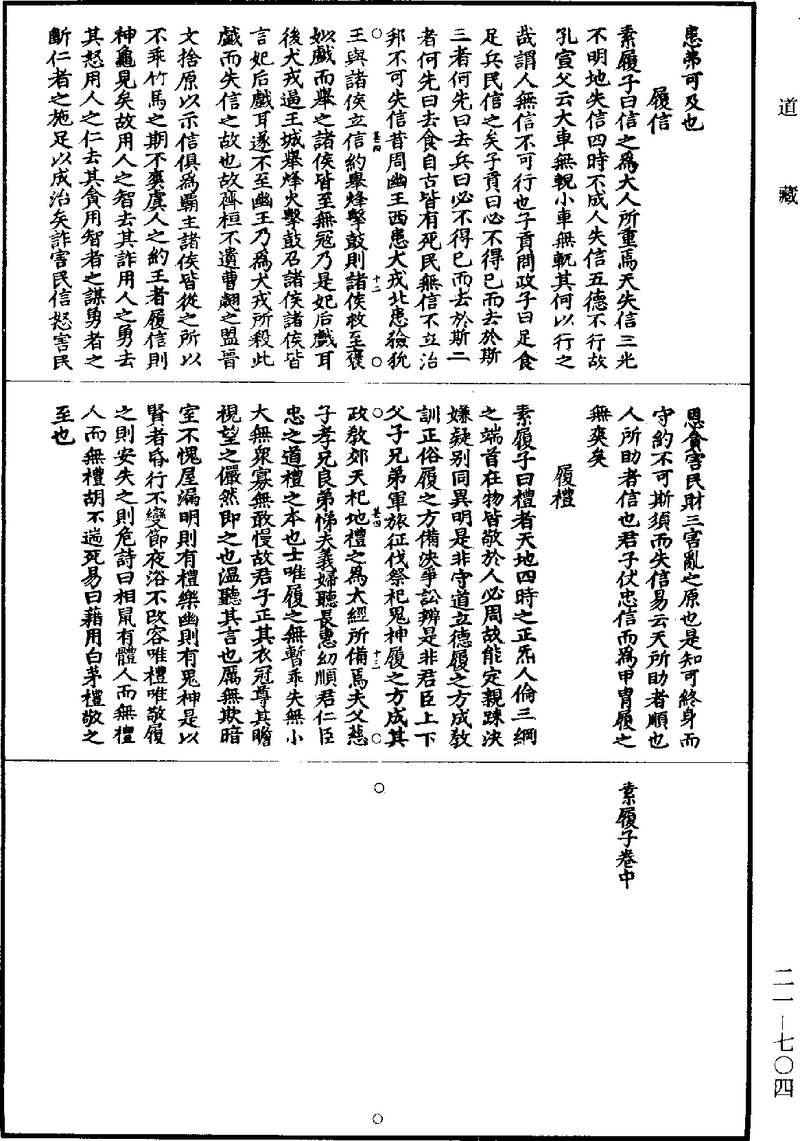 道藏
患弟可及也
履信
素履子曰信之爲大人所重焉天失信三光
不明地失信四時不成人失信五德不行故
孔宣父云大車無輗小車無軏其何以行之
哉謂人無信不可行也子貢問政子曰足食
足兵民信之矣子貢曰必不得已而去於斯
三者何先曰去兵曰必不得已而去於斯二
者何先曰去食自古皆有死民無信不立治
邦不可失信昔周幽王西患犬戎北患獫狁
王與諸侯立信約舉烽擊鼓則諸侯救至褒
姒戲而舉之諸侯皆至無寇乃是妃后戲耳
後犬戎逼王城舉烽火擊鼓召諸侯諸侯皆
言妃后戲耳遂不至幽王乃爲犬戎所殺此
戲而失信之故也故齊桓不遺曹翽之盟晉
文捨原以示信俱爲霸主諸侯皆從之所以
不乖竹馬之期不爽虞人之約王者履信則
神龜見矣故用人之智去其詐用人之勇去
其怒用人之仁去其貪用智者之謀勇者之
斷仁者之施足以成治矣詐害民信怒害民
恩貪害民財三害亂之原也是知可終身而
守約不可斯須而失信易云天所助者順也
人所助者信也君子仗忠信而爲甲冑履之
無爽矣
履禮
素履子曰禮者天地四時之正炁人倫三綱
之端首在物皆敬於人必周故能定親踈決
嫌疑别同異明是非守道立德履之方成教
訓正俗履之方備決爭訟辨是非君臣上下
父子兄弟軍旅征伐祭祀鬼神履之方成其
政教郊天祀地禮之爲大經所備焉夫父慈
子孝兄良弟悌夫義婦聽長惠幼順君仁臣
忠之道禮之本也士唯履之無暫乖失無小
大無衆寡無敢慢故君子正其衣冠尊其瞻
視望之儼然即之也溫聽其言也厲無欺暗
室不愧屋漏明則有禮樂幽則有鬼神是以
賢者昏行不變節夜浴不改容唯禮唯敬履
之則安失之則危詩曰相鼠有體人而無禮
人而無禮胡不遄死易曰藉用白茅禮敬之
至也
素履子卷中
二一—七〇四